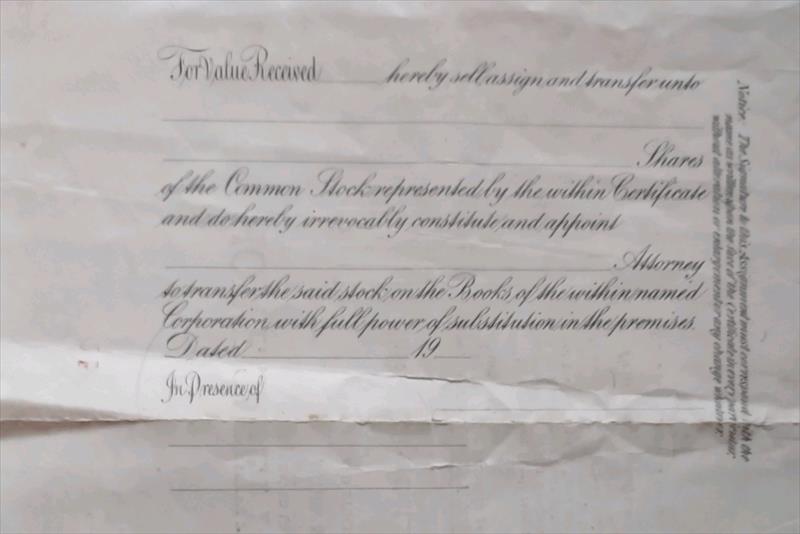 For Value Received hereby sell assign and transfer unto
Shares
of the Common Stock represented by the within Certificate
and do hereby irrevocably constitute and appoint
Attorney
to transfer the said stock on the Books of the within named
Corporation with full power of substitution in the premises.
Dated 19
In Presence of
Notice. The Signature to this Assignment must correspond with the
name as written upon the face of the Certificate in every particular,
without alteration or enlargement or any change whatever.